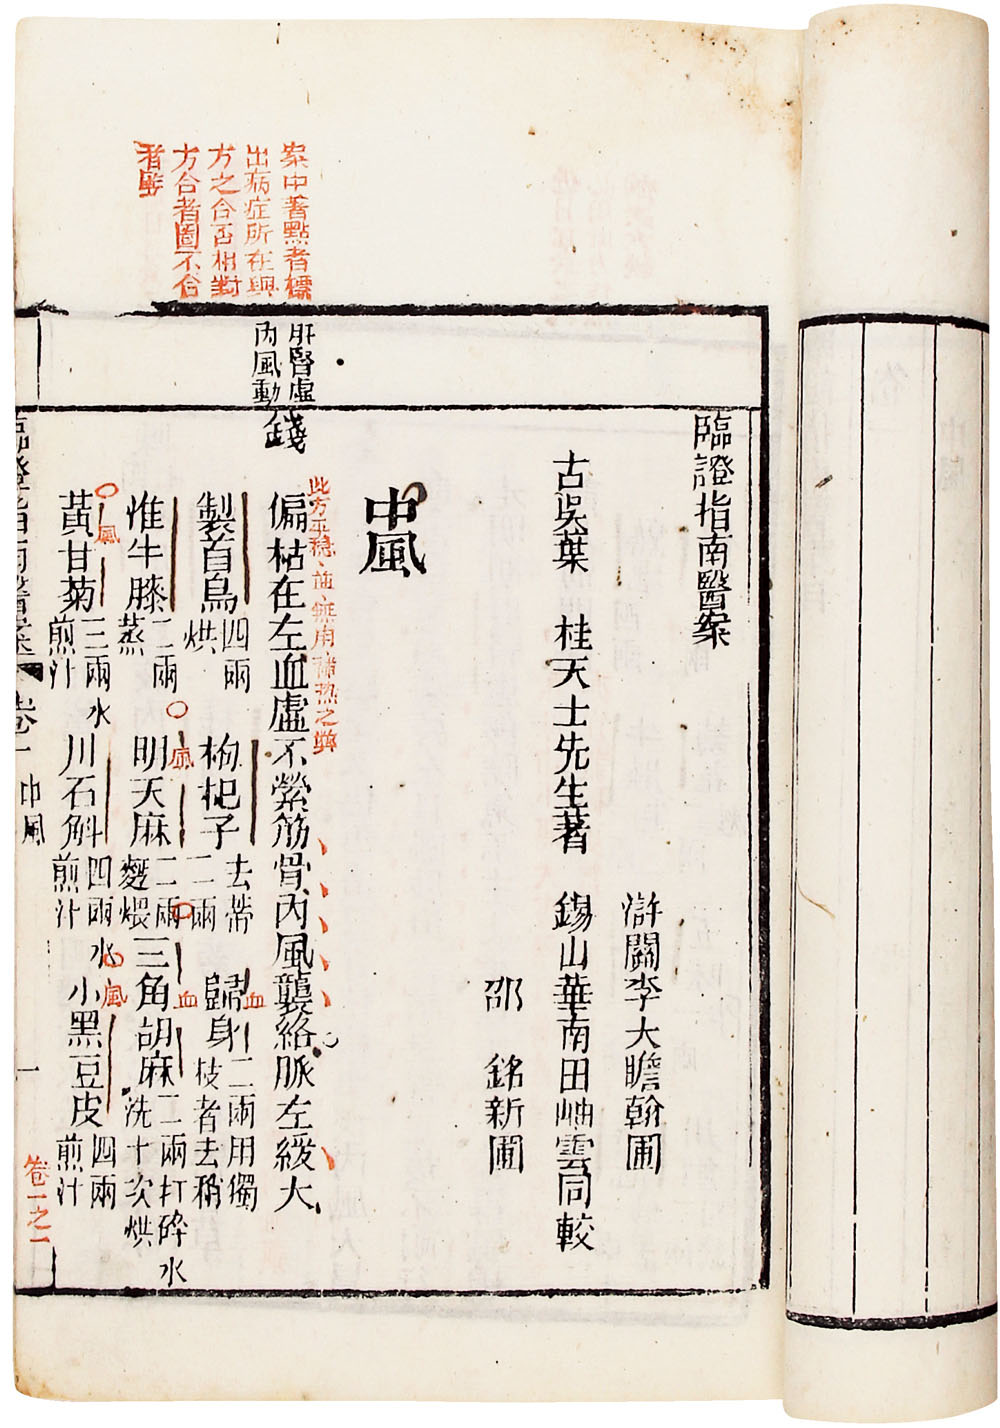 臨證指南醫案
滸關李大瞻翰圃
古吳葉　桂天士先生著　錫山華南田岫雲同較
邵　銘新圃
中風
此方平穩
肝腎虛
內風動
錢
偏枯在左血虛不縈筋骨內風襲絡脈左緩大
製首烏四兩烘　枸杞子去蒂二兩　歸身二兩用獨枝者去稍
懷牛膝二兩蒸　明天麻二兩麵煨　三角胡麻二兩打碎水洗十次烘
黃甘菊三兩水煎汁　川石斛四兩水煎汁　小黑豆皮四兩煎汁
血
血
風
風
風
案中著點者標
出病症所在與
方之合否相對
方合者圈不合
者豎
臨證指南醫案　卷一　中風　一
卷一之一